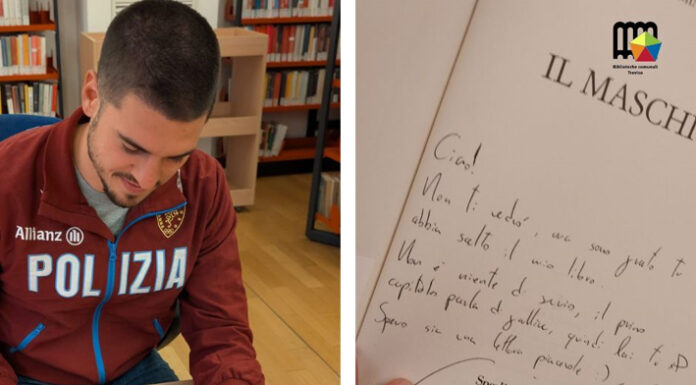 Allianz
POLIZIA
Biblioteche comunali
Treviso
IL MASCHI
Ciao!
Non ti vedrò, ma sono grato tu
abbia scelto il mio libro.
Non è niente di serio, il primo
capitolo parla di galline, quindi
Spero sia una lettura piacevole :)